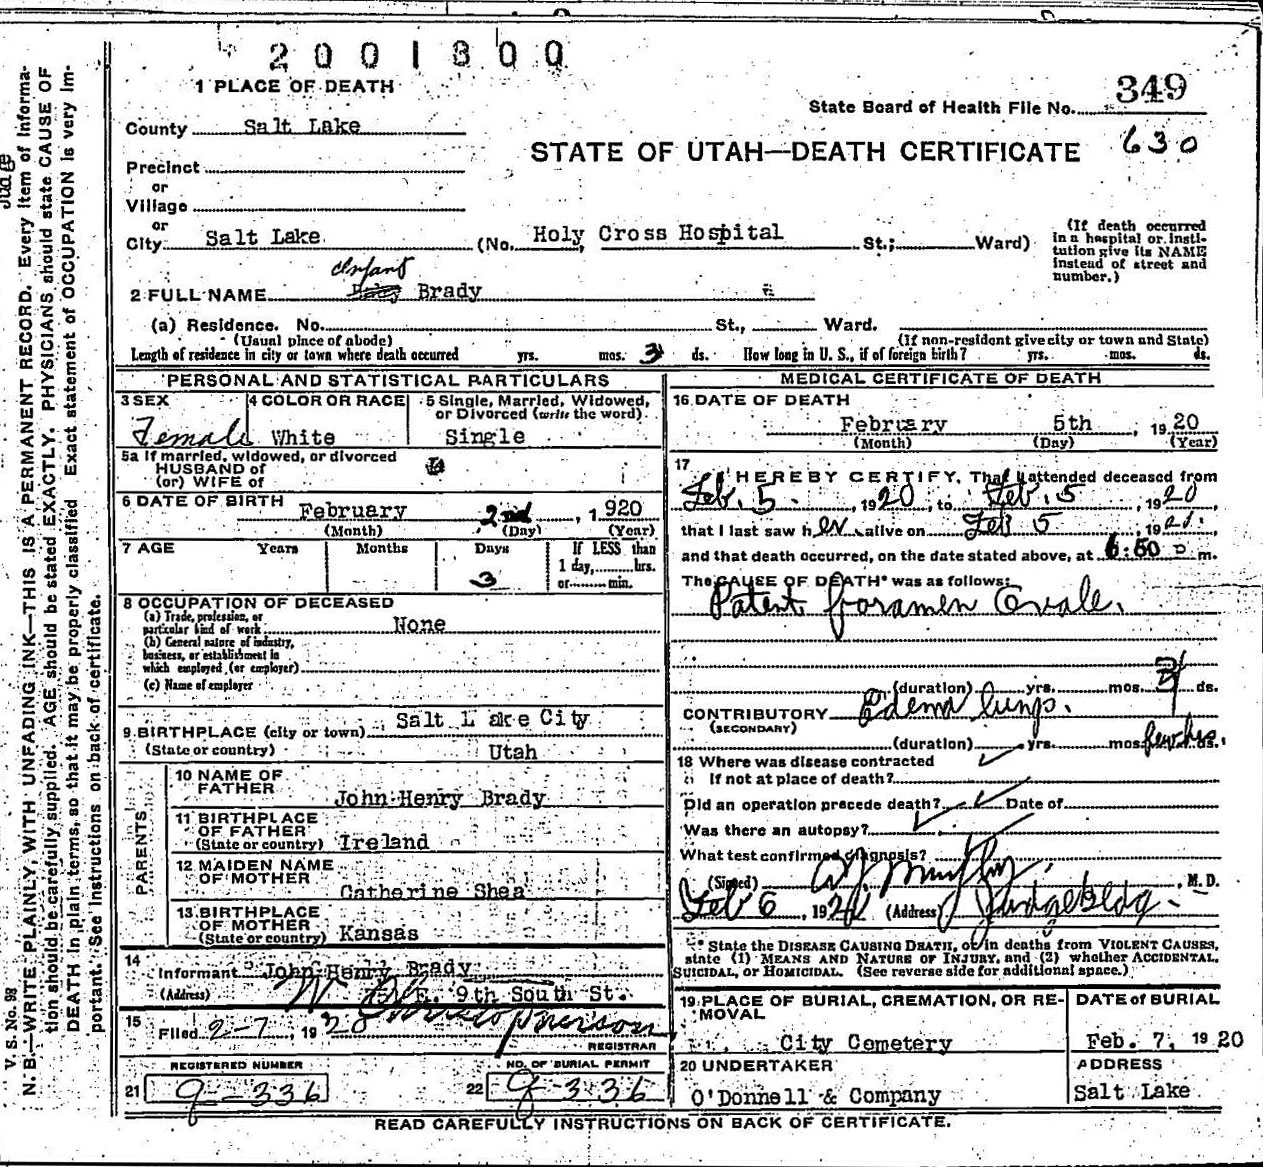 2001800
1 PLACE OF DEATH
State Board of Health File No. 349
630
County Salt Lake
STATE OF UTAH—DEATH CERTIFICATE
Precinct
or
Village
or
City Salt Lake (No. Holy Cross Hospital St.; Ward)
(If death occurred in a hospital or institution give its NAME instead of street and number.)
Infant
2 FULL NAME Brady
(a) Residence. No. St., Ward.
(Usual place of abode) (If non-resident give city or town and State)
Length of residence in city or town where death occurred yrs. mos. 3 ds. How long in U. S., if of foreign birth? yrs. mos. ds.
PERSONAL AND STATISTICAL PARTICULARS
3 SEX Female
4 COLOR OR RACE White
5 Single, Married, Widowed, or Divorced (write the word) Single
5a If married, widowed, or divorced
HUSBAND of
(or) WIFE of
6 DATE OF BIRTH
February 2nd, 1920
(Month) (Day) (Year)
7 AGE Years Months Days If LESS than
1 day, hrs.
3 or min.
8 OCCUPATION OF DECEASED
(a) Trade, profession, or
particular kind of work None
(b) General nature of industry,
business, or establishment in
which employed (or employer)
(c) Name of employer
9 BIRTHPLACE (city or town) Salt Lake City
(State or country) Utah
PARENTS
10 NAME OF
FATHER John Henry Brady
11 BIRTHPLACE
OF FATHER
(State or country) Ireland
12 MAIDEN NAME
OF MOTHER
Catherine Shea
13 BIRTHPLACE
OF MOTHER
(State or country) Kansas
14
Informant John Henry Brady
(Address) E. 9th South St.
15
Filed 2-7, 1920
REGISTRAR
REGISTERED NUMBER NO. OF BURIAL PERMIT
21 9-336 22 9-336
MEDICAL CERTIFICATE OF DEATH
16 DATE OF DEATH
February 5th, 1920
(Month) (Day) (Year)
17
I HEREBY CERTIFY, That I attended deceased from
Feb. 5, 1920, to Feb. 5, 1920
that I last saw her alive on Feb 5 192
and that death occurred, on the date stated above, at 6:50 P m.
The CAUSE OF DEATH* was as follows:
Patent Foramen Ovale.
(duration) yrs. mos. 3 ds.
CONTRIBUTORY Edema lungs.
(SECONDARY)
(duration) yrs. mos. few hrs. ds.
18 Where was disease contracted
if not at place of death?
Did an operation precede death? Date of
Was there an autopsy?
What test confirmed diagnosis?
(Signed) Murphy, M. D.
Feb 6, 192 (Address) Judge Bldg.
* State the DISEASE CAUSING DEATH, or in deaths from VIOLENT CAUSES,
state (1) MEANS AND NATURE OF INJURY, and (2) whether ACCIDENTAL,
SUICIDAL, or HOMICIDAL. (See reverse side for additional space.)
19 PLACE OF BURIAL, CREMATION, OR REMOVAL
City Cemetery
DATE of BURIAL
Feb. 7, 1920
20 UNDERTAKER
O'Donnell & Company
ADDRESS
Salt Lake
READ CAREFULLY INSTRUCTIONS ON BACK OF CERTIFICATE.
V. S. No. 98
N. B.—WRITE PLAINLY, WITH UNFADING INK—THIS IS A PERMANENT RECORD. Every item of informa-
tion should be carefully supplied. AGE should be stated EXACTLY. PHYSICIANS should state CAUSE OF
DEATH in plain terms, so that it may be properly classified. Exact statement of OCCUPATION is very im-
portant. See instructions on back of certificate.
Judge